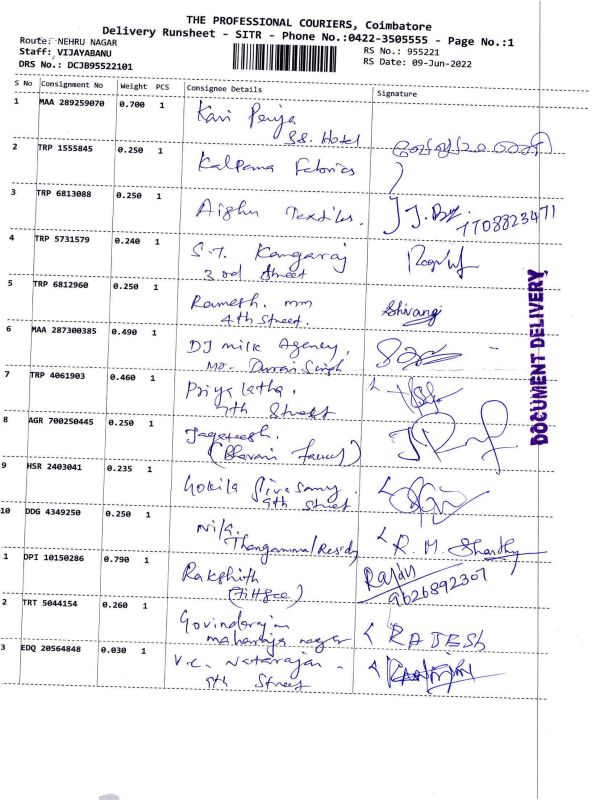 THE PROFESSIONAL COURIERS, Coimbatore
Delivery Runsheet - SITR - Phone No.:0422-3505555 - Page No.:1
Route: NEHRU NAGAR
RS No.: 955221
Staff: VIJAYABANU
RS Date: 09-Jun-2022
DRS No.: DCJB95522101
S No Consignment No Weight PCS Consignee Details Signature
1 MAA 289259070 0.700 1 Kavi Periya
SS. Hotel
2 TRP 1555845 0.250 1 Kalpana Fabrics
3 TRP 6813088 0.250 1 Aishu Textiles.
7708823471
4 TRP 5731579 0.240 1 S.T. Kangaraj
3rd Street
5 TRP 6812960 0.250 1 Ramesh. mm Shivani
4th Street.
6 MAA 287300385 0.490 1 DJ milk Agency,
Mr. Durai Singh
7 TRP 4061903 0.460 1 Priya latha.
7th Street
8 AGR 700250445 0.250 1 Jagateesh.
(Bhavani
9 HSR 2403041 0.235 1 Gokila Sivasamy.
9th Street
10 DDG 4349250 0.250 1 Nila. R. M. Sharthy
Thangammal Residy
1 DPI 10150286 0.790 1 Rakshith Rajan
9626892307
2 TRT 5044154 0.260 1 Govindarajan RAJESH
maharaja nagar
3 EDQ 20564848 0.030 1 V.C. Natarajan -
9th Street
DOCUMENT DELIVERY